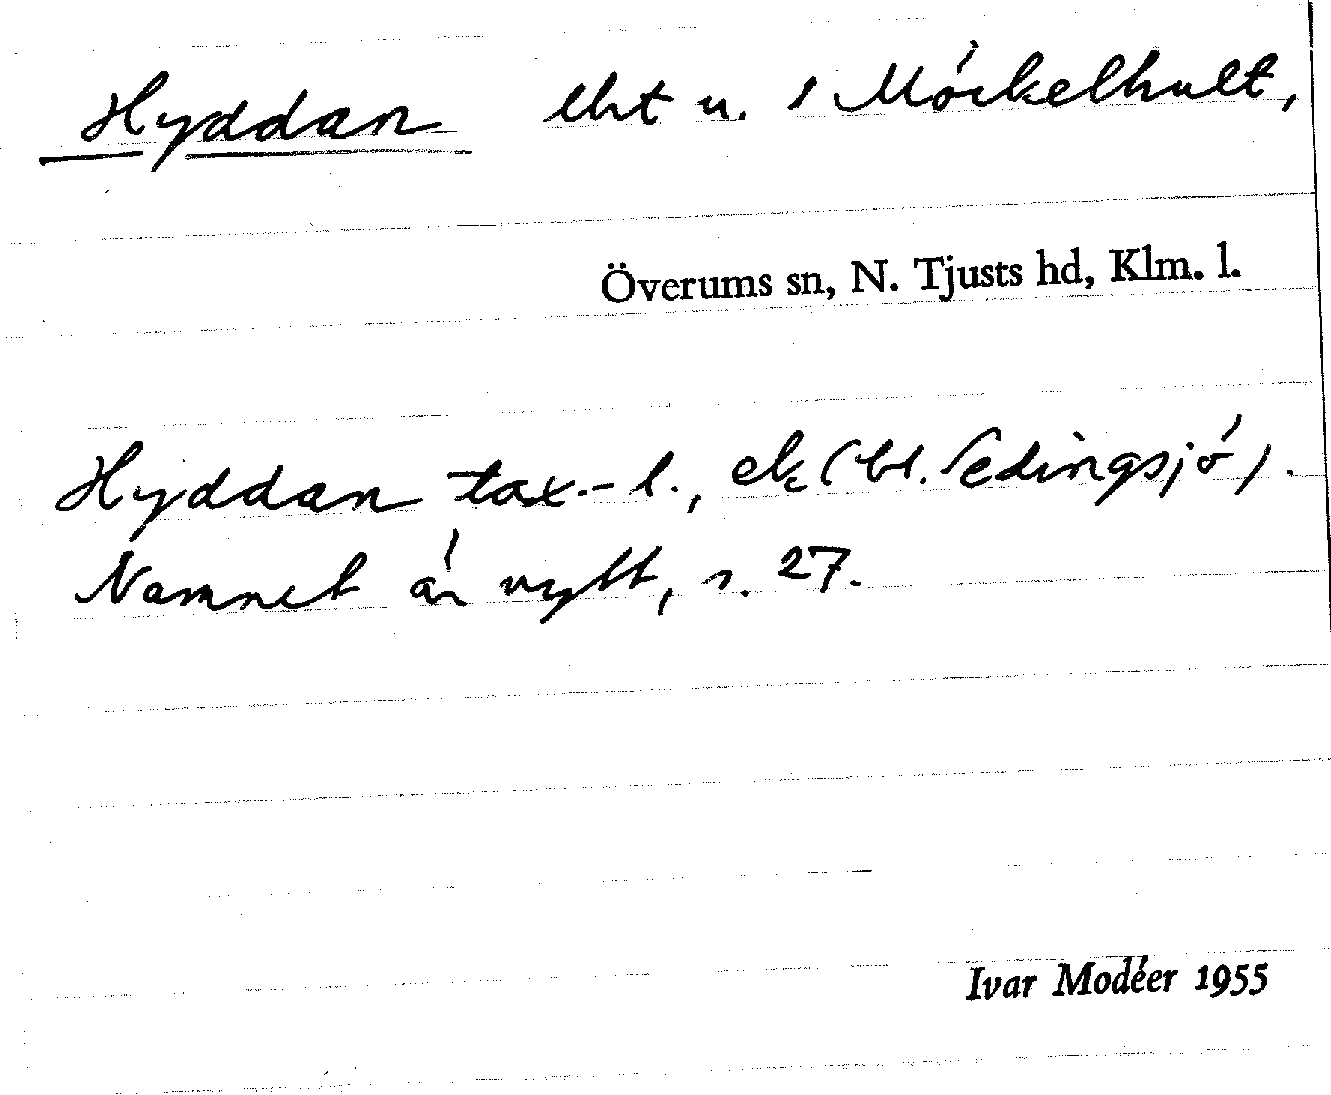 Hyddan lht u. 1 Mörkelhult,
Överums sn, N. Tjusts hd, Klm. l.
Hyddan tax.-l., ek (bl. Sedingsjö).
Namnet är nytt, s. 27.
Ivar Modéer 1955